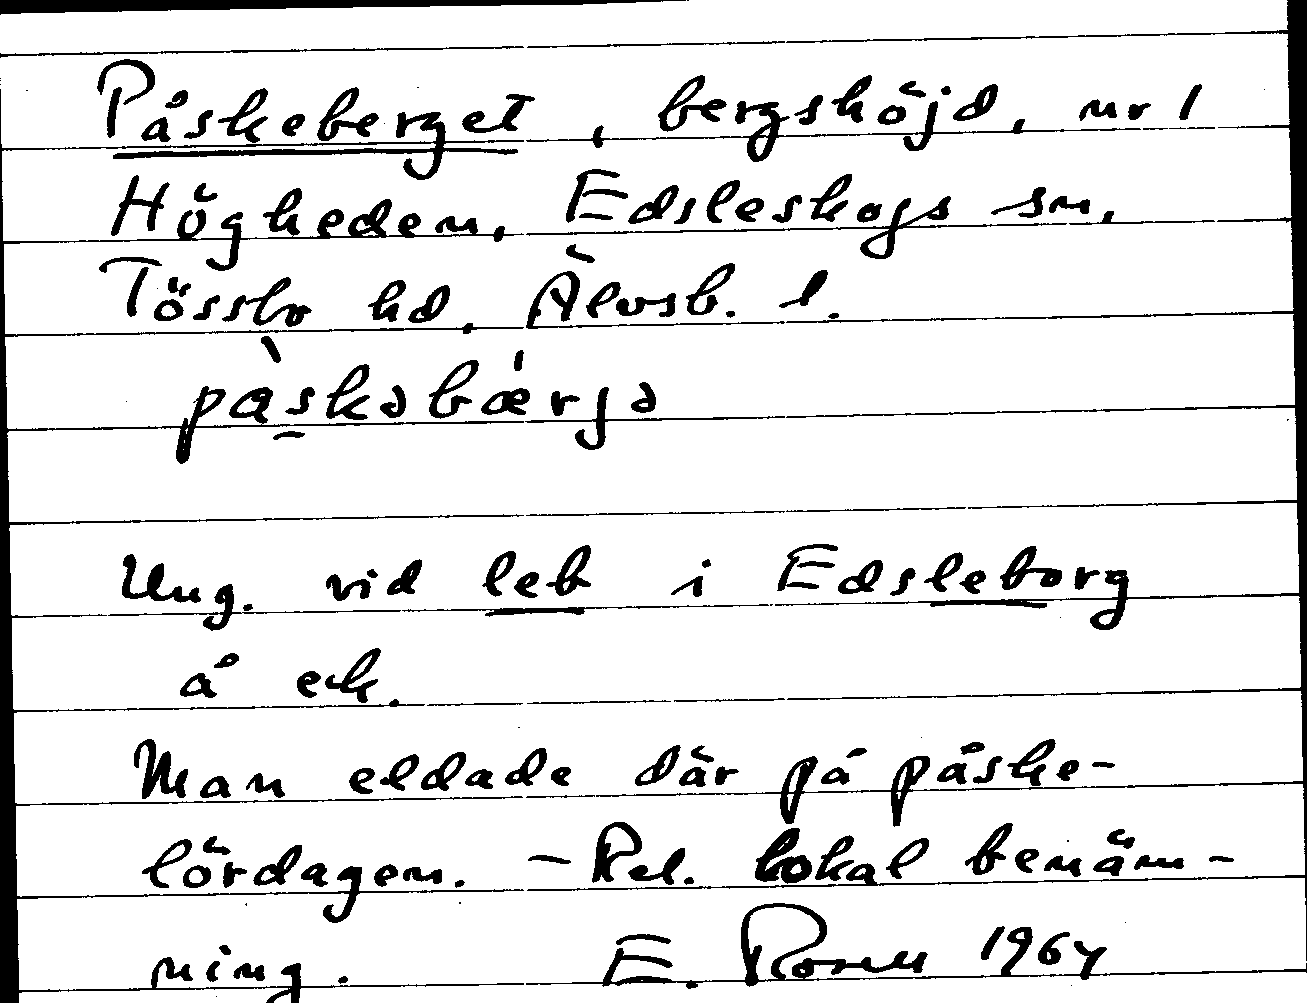 Påskeberget, bergshöjd, nr 1
Högheden, Edsleskogs sn,
Tössbo hd, Älvsb. l.
pàskəbǽrjə
Ung. vid leb i Edsleborg
å ek.
Man eldade där på påske-
lördagen. – Rel. lokal benäm-
ning. E. Rosell 1964